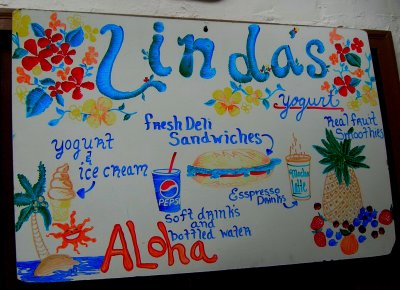 Lindas
yogurt
yogurt
&
ice cream
fresh Deli
Sandwiches
Real fruit
Smoothies
PEPSI
Mocha
Latte
Esspresso
Drinks
soft drinks
and
bottled water
Aloha